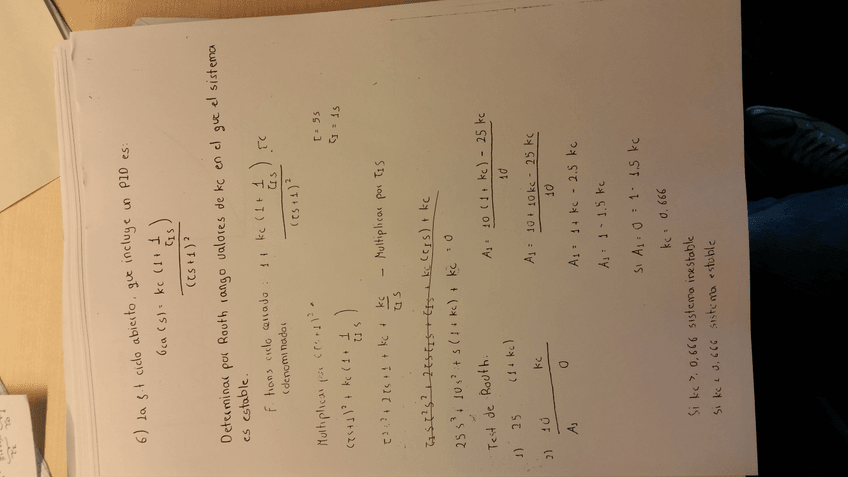 6) la f.t ciclo abierto, que incluye un PID es:
Gca(s) = kc (1 + 1/τIs) / (τs+1)²
Determinar por Routh rango valores de kc en el que el sistema
es estable.
F. trans ciclo cerrado : 1 + kc (1 + 1/τIs) / (τs+1)²
(denominador
τ = 5s
τI = 1s
Multiplicar por (τs+1)²
(τs+1)² + kc (1 + 1/τIs)
τ²s² + 2τs + 1 + kc + kc/τIs — Multiplicar por τIs
τIs τ²s² + 2τsτIs + τIs + kc(τIs) + kc
25s³ + 10s² + s(1+kc) + kc = 0
Test de Routh.
1) 25 (1+kc)
2) 10 kc
A1 0
A1 = 10(1+kc) - 25 kc / 10
A1 = 10 + 10kc - 25 kc / 10
A1 = 1 + kc - 2.5 kc
A1 = 1 - 1.5 kc
si A1 = 0 = 1 - 1.5 kc
kc = 0.666
Si kc > 0.666 sistema inestable
Si kc < 0.666 sistema estable